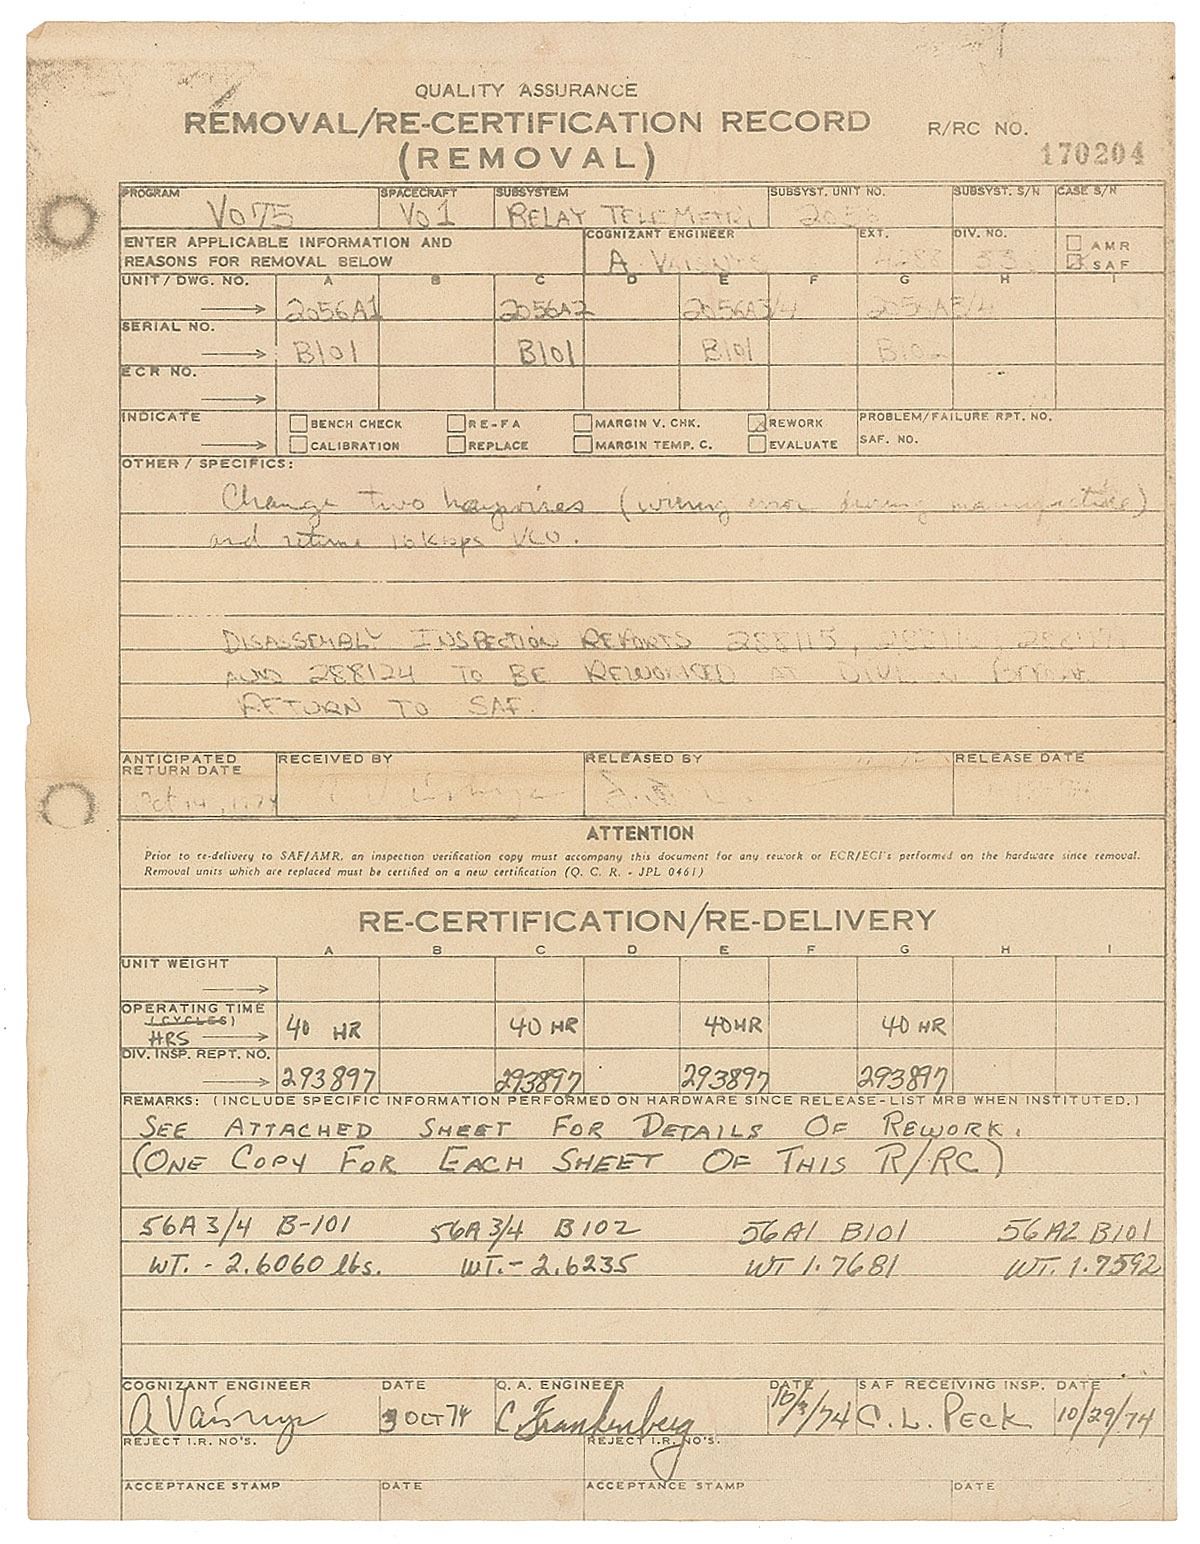 QUALITY ASSURANCE
REMOVAL/RE-CERTIFICATION RECORD
R/RC NO.
(REMOVAL)
170204
PROGRAM SPACECRAFT SUBSYSTEM SUBSYST. UNIT NO. SUBSYST. S/N CASE S/N
VO75 VO1 RELAY TELEMETRY 2056
ENTER APPLICABLE INFORMATION AND COGNIZANT ENGINEER EXT. DIV. NO. AMR
REASONS FOR REMOVAL BELOW A VAISNYS SAF
UNIT / DWG. NO. A B C D E F G H I
2056A1 2056A2 2056A3/4 2056A3/4
SERIAL NO.
B101 B101 B101 B102
ECR NO.
INDICATE BENCH CHECK RE-FA MARGIN V. CHK. REWORK PROBLEM/FAILURE RPT. NO.
CALIBRATION REPLACE MARGIN TEMP. C. EVALUATE SAF. NO.
OTHER / SPECIFICS:
Change two haywires (wiring error during manufacture)
and retune 16 Kbps VCO.
DISASSEMBLY INSPECTION REPORTS 288115,
AND 288124 TO BE REWORKED AT
RETURN TO SAF.
ANTICIPATED RECEIVED BY RELEASED BY RELEASE DATE
RETURN DATE
Oct 14, 1974
ATTENTION
Prior to re-delivery to SAF/AMR, an inspection verification copy must accompany this document for any rework or ECR/ECI's performed on the hardware since removal.
Removal units which are replaced must be certified on a new certification (Q. C. R. - JPL 0461)
RE-CERTIFICATION/RE-DELIVERY
A B C D E F G H I
UNIT WEIGHT
OPERATING TIME
(CYCLES)
HRS 40 HR 40 HR 40HR 40 HR
DIV. INSP. REPT. NO.
293897 293897 293897 293897
REMARKS: (INCLUDE SPECIFIC INFORMATION PERFORMED ON HARDWARE SINCE RELEASE-LIST MRB WHEN INSTITUTED.)
SEE ATTACHED SHEET FOR DETAILS OF REWORK.
(ONE COPY FOR EACH SHEET OF THIS R/RC)
56A3/4 B-101 56A3/4 B102 56A1 B101 56A2 B101
WT. - 2.6060 lbs. WT. - 2.6235 WT 1.7681 WT. 1.7592
COGNIZANT ENGINEER DATE Q. A. ENGINEER DATE SAF RECEIVING INSP. DATE
A Vaisnys 3 OCT 74 C Frankenberg 10/3/74 C. L. PECK 10/29/74
REJECT I.R. NO'S. REJECT I.R. NO'S.
ACCEPTANCE STAMP DATE ACCEPTANCE STAMP DATE